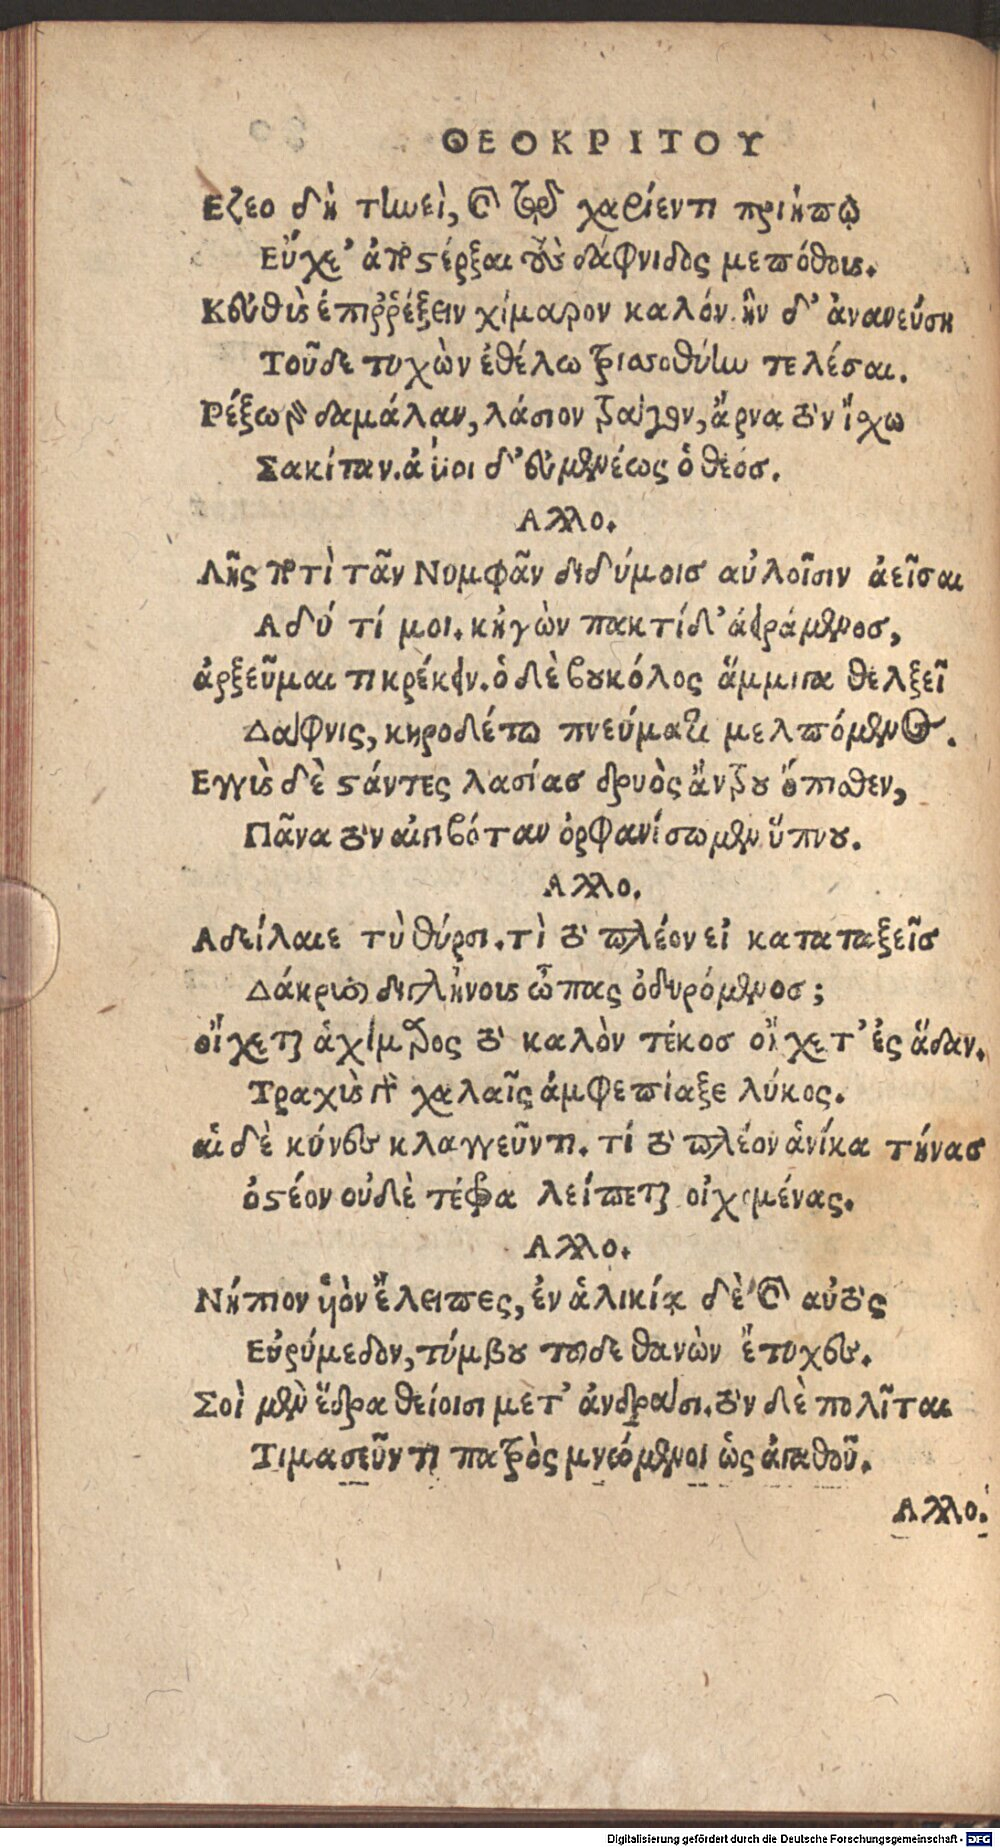 ΘΕΟΚΡΙΤΟΥ
Εζεο δὴ τηνεὶ, καὶ τῷ χαρίεντι πριήπῳ
Εὔχε’ ἀποστέρξαι τοὺς δάφνιδός με πόθους.
Κεὐθὺς ἐπιῤῥέξειν χίμαρον καλόν. ἢν δ’ ἀνανεύση
Τοῦδε τυχὼν ἐθέλω τριασοθύην τελέσαι.
Ρέξω γὰρ δαμάλαν, λάσιον τράγον, ἄρνα τὸν ἴχω
Σακίταν. ἀΐοι δ’ εὐμενέως ὁ θεόσ.
Αλλο.
Λῇς ποτὶ τᾶν Νυμφᾶν διδύμοισ αὐλοῖσιν ἀεῖσαι
Αδύ τί μοι. κηγὼν πακτίδ’ ἀειράμενοσ,
ἀρξεῦμαι τι κρέκειν. ὁ δὲ βουκόλος ἄμμιγα θελξεῖ
Δάφνις, κηροδέτω πνεύματι μελπόμενος.
Εγγὺς δὲ στάντες λασίασ δρυὸς ἄντρου ὄπισθεν,
Πᾶνα τὸν αἰγιβόταν ὀρφανίσωμεν ὕπνου.
Αλλο.
Αδείλαιε τὺ θύρσι. τὶ τὸ πλέον εἰ καταταξεῖσ
Δάκρυσι διγλήνους ὦπας ὀδυρόμενοσ;
οἴχεται ἁ χίμαρος τὸ καλὸν τέκοσ οἴχετ’ ἐς ἅδαν.
Τραχὺς γὰρ χαλαῖς ἀμφεπίαξε λύκος.
αἱ δὲ κύνες κλαγγεῦντι. τί τὸ πλέον ἁνίκα τήνασ
ὀστέον οὐδὲ τέφρα λείπεται οἰχομένας.
Αλλο.
Νήπιον υἱὸν ἔλειπες, ἐν ἁλικίᾳ δὲ καὶ αὐτὸς
Εὐρύμεδον, τύμβου τῶδε θανὼν ἔτυχες.
Σοὶ μὲν ἕδρα θείοισι μετ’ ἀνδράσι. τὸν δὲ πολῖται
Τιμασεῦντι πατρὸς μνεόμενοι ὡς ἀγαθοῦ.
Αλλο.
Digitalisierung gefördert durch die Deutsche Forschungsgemeinschaft - DFG